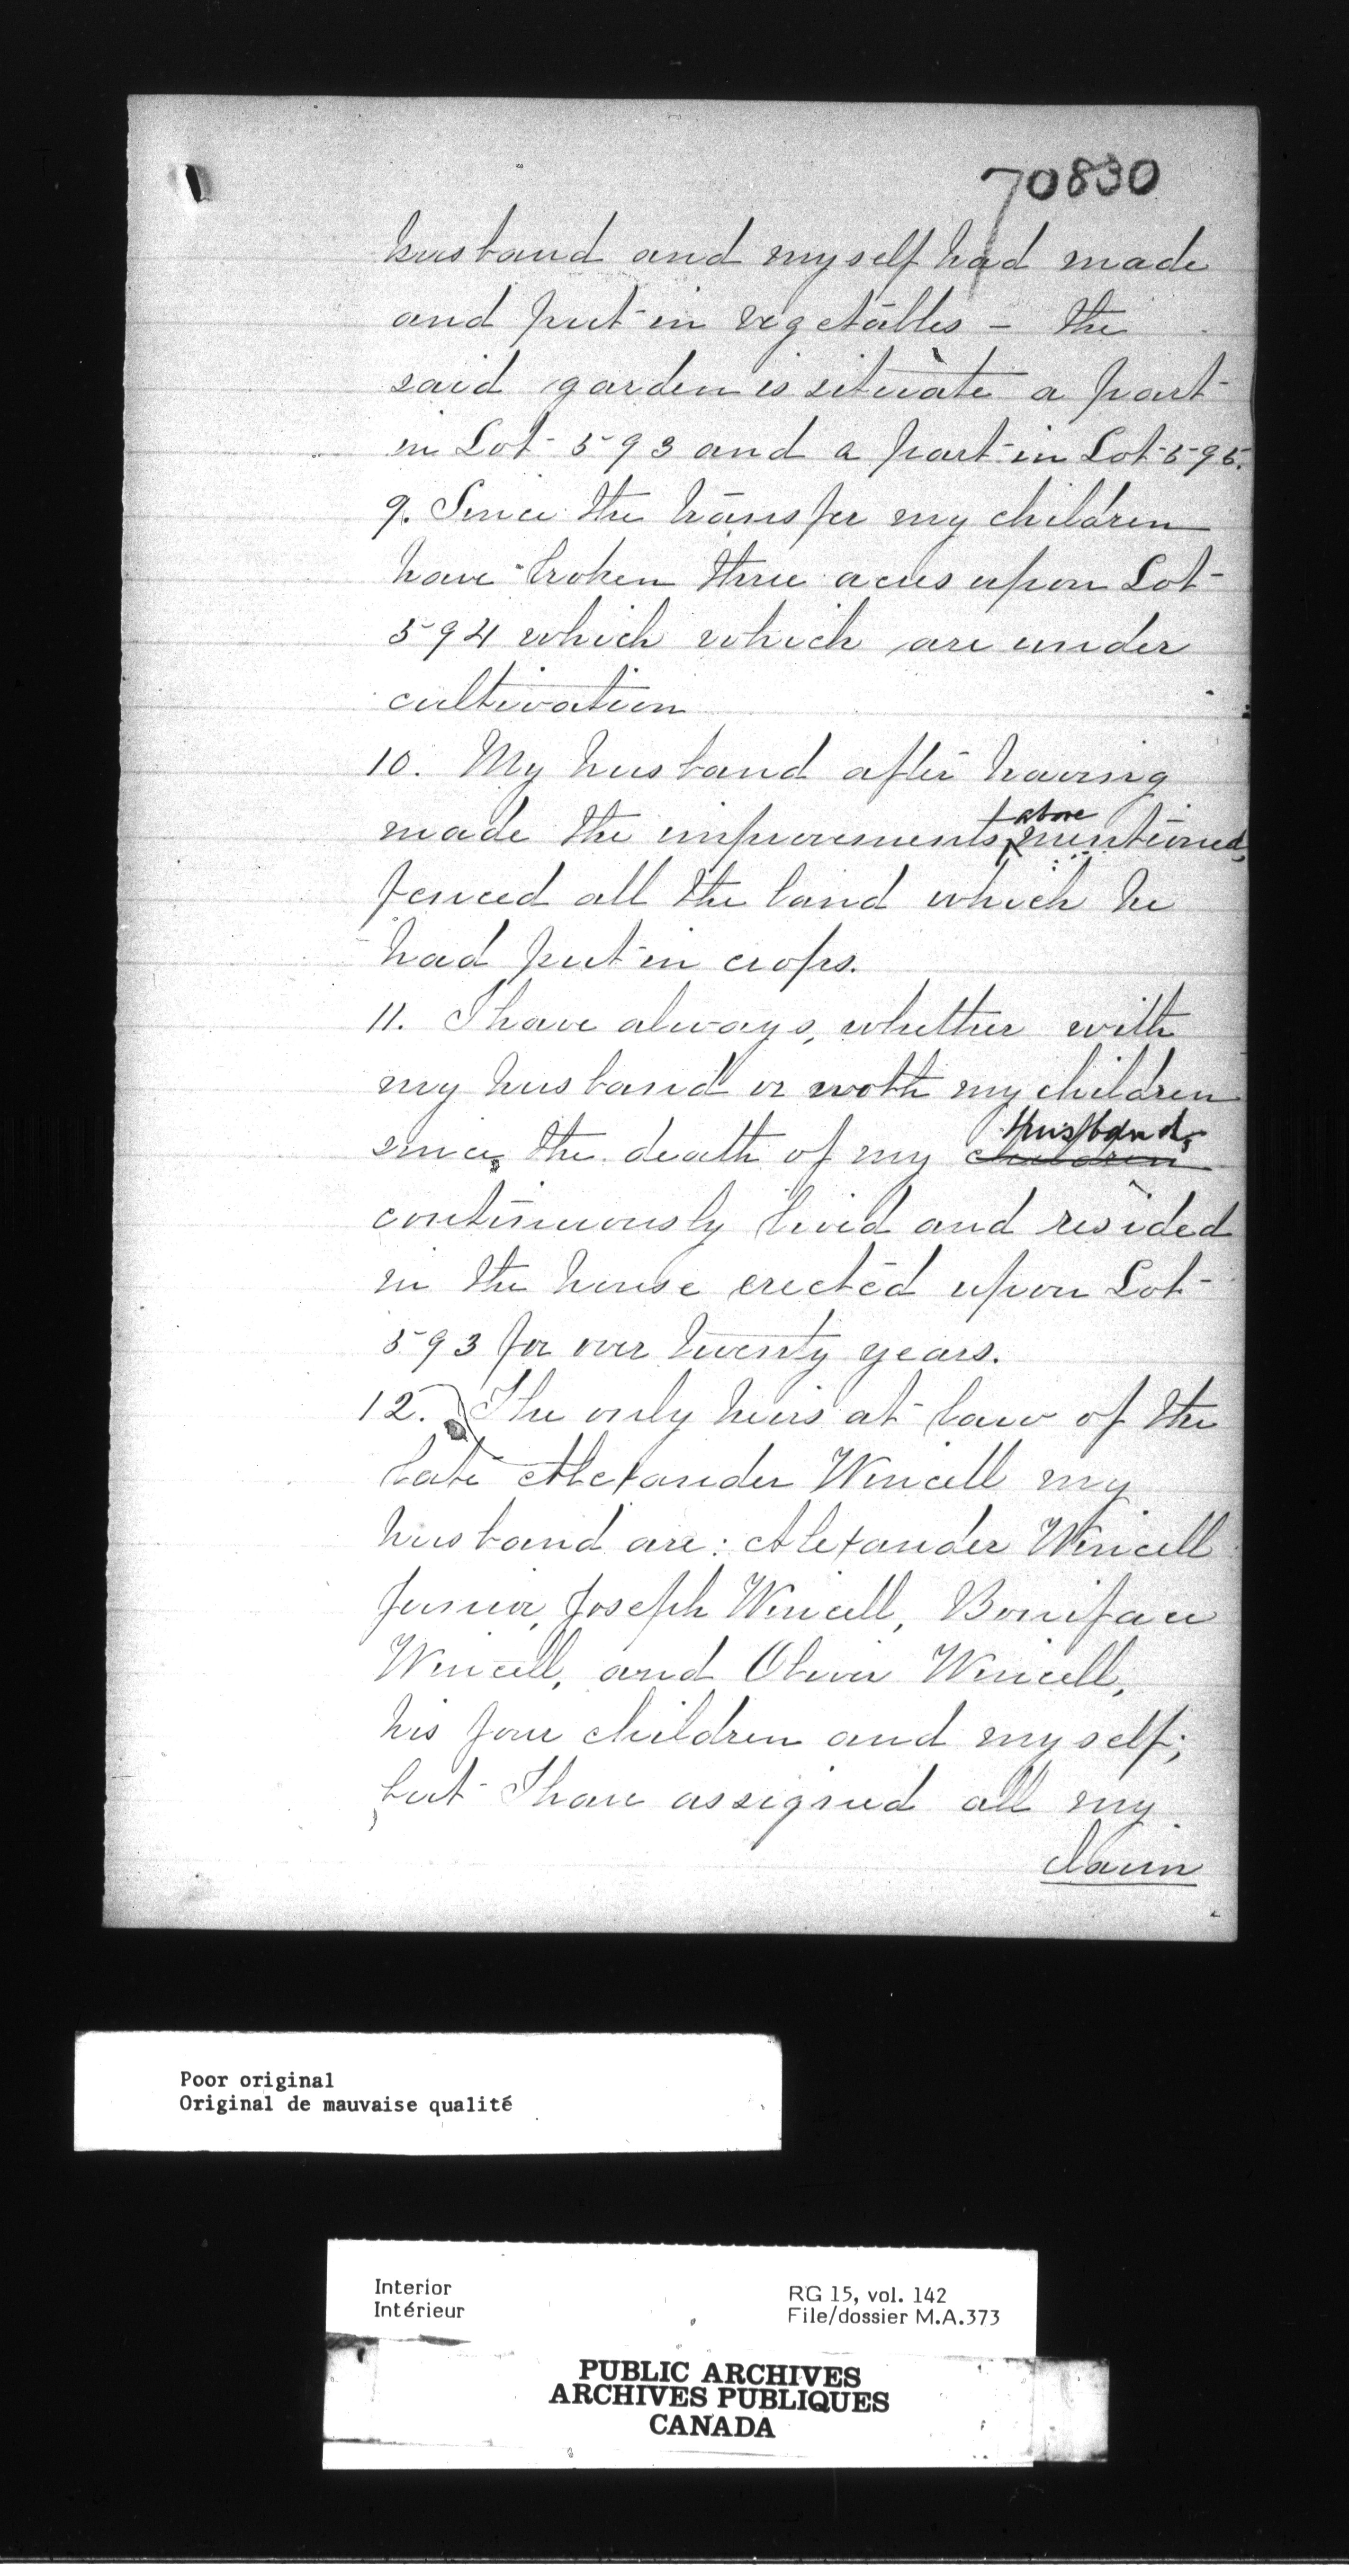 70830
husband and myself had made
and put in vegetables - the
said garden is situate a part
in Lot 593 and a part in Lot 595.
9. Since the transfer my children
have broken three acres upon Lot
594 which which are under
cultivation
10. My husband after having
made the improvements above mentioned,
fenced all the land which he
had put in crops.
11. I have always, whether with
my husband or with my children
since the death of my children husband,
continuously lived and resided
in the house erected upon Lot
593 for over twenty years.
12. The only heirs at law of the
late Alexander Wincell my
husband are: Alexander Wincell
Junior, Joseph Wincell, Boniface
Wincell, and Oliver Wincell,
his four children and myself;
but I have assigned all my
claim
Poor original
Original de mauvaise qualité
Interior
Intérieur
RG 15, vol. 142
File/dossier M.A.373
PUBLIC ARCHIVES
ARCHIVES PUBLIQUES
CANADA